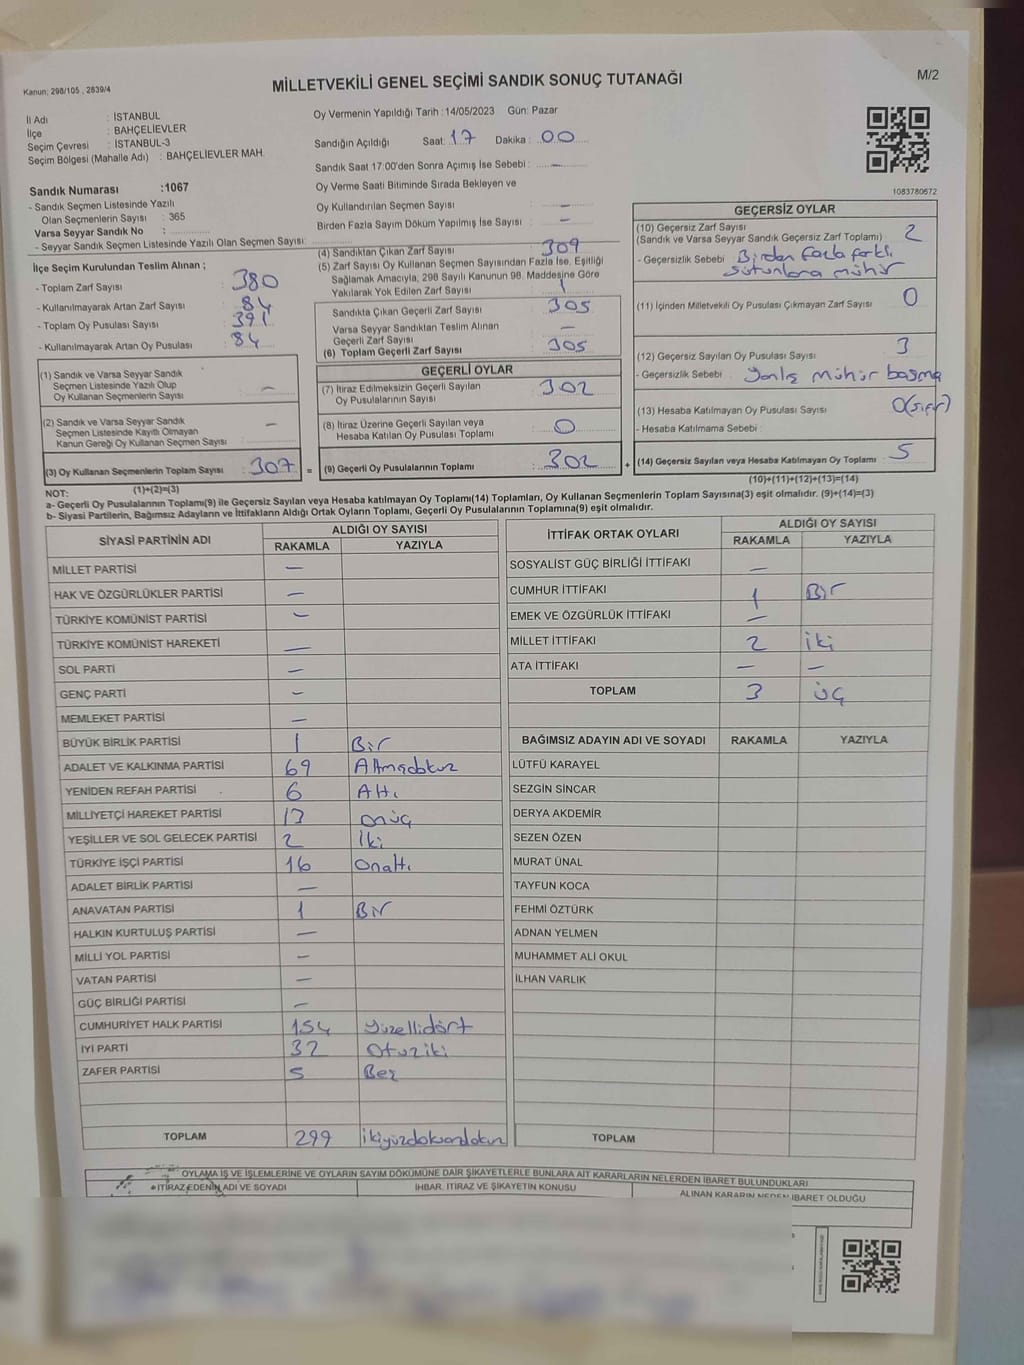 Kanun; 298/105 , 2839/4
MİLLETVEKİLİ GENEL SEÇİMİ SANDIK SONUÇ TUTANAĞI
M/2
İl Adı : İSTANBUL
İlçe : BAHÇELİEVLER
Seçim Çevresi : İSTANBUL-3
Seçim Bölgesi (Mahalle Adı) : BAHÇELİEVLER MAH.
Sandık Numarası :1067
- Sandık Seçmen Listesinde Yazılı
Olan Seçmenlerin Sayısı : 365
Varsa Seyyar Sandık No :
- Seyyar Sandık Seçmen Listesinde Yazılı Olan Seçmen Sayısı:
İlçe Seçim Kurulundan Teslim Alınan ;
- Toplam Zarf Sayısı : 380
- Kullanılmayarak Artan Zarf Sayısı : 84
- Toplam Oy Pusulası Sayısı : 391
- Kullanılmayarak Artan Oy Pusulası : 84
(1) Sandık ve Varsa Seyyar Sandık
Seçmen Listesinde Yazılı Olup
Oy Kullanan Seçmenlerin Sayısı : –
(2) Sandık ve Varsa Seyyar Sandık
Seçmen Listesinde Kayıtlı Olmayan
Kanun Gereği Oy Kullanan Seçmen Sayısı : –
(3) Oy Kullanan Seçmenlerin Toplam Sayısı : 307
(1)+(2)=(3)
Oy Vermenin Yapıldığı Tarih : 14/05/2023 Gün: Pazar
Sandığın Açıldığı Saat: 17 Dakika : 00
Sandık Saat 17:00'den Sonra Açımış İse Sebebi : –
Oy Verme Saati Bitiminde Sırada Bekleyen ve
Oy Kullandırılan Seçmen Sayısı : –
Birden Fazla Sayım Döküm Yapılmış İse Sayısı : –
(4) Sandıktan Çıkan Zarf Sayısı : 309
(5) Zarf Sayısı Oy Kullanan Seçmen Sayısından Fazla İse, Eşitliği
Sağlamak Amacıyla, 298 Sayılı Kanunun 98. Maddesine Göre
Yakılarak Yok Edilen Zarf Sayısı : 1
Sandıkta Çıkan Geçerli Zarf Sayısı : 305
Varsa Seyyar Sandıktan Teslim Alınan
Geçerli Zarf Sayısı : –
(6) Toplam Geçerli Zarf Sayısı : 305
GEÇERLİ OYLAR
(7) İtiraz Edilmeksizin Geçerli Sayılan
Oy Pusulalarının Sayısı : 302
(8) İtiraz Üzerine Geçerli Sayılan veya
Hesaba Katılan Oy Pusulası Toplamı : 0
= (9) Geçerli Oy Pusulalarının Toplamı : 302 +
1083780672
GEÇERSİZ OYLAR
(10) Geçersiz Zarf Sayısı
(Sandık ve Varsa Seyyar Sandık Geçersiz Zarf Toplamı) : 2
- Geçersizlik Sebebi : Birden fazla farklı
sütunlara mühür
(11) İçinden Milletvekili Oy Pusulası Çıkmayan Zarf Sayısı : 0
(12) Geçersiz Sayılan Oy Pusulası Sayısı : 3
- Geçersizlik Sebebi : Yanlış mühür basma
(13) Hesaba Katılmayan Oy Pusulası Sayısı : 0(sıfır)
- Hesaba Katılmama Sebebi :
(14) Geçersiz Sayılan veya Hesaba Katılmayan Oy Toplamı : 5
(10)+(11)+(12)+(13)=(14)
NOT:
a- Geçerli Oy Pusulalarının Toplamı(9) ile Geçersiz Sayılan veya Hesaba katılmayan Oy Toplamı(14) Toplamları, Oy Kullanan Seçmenlerin Toplam Sayısına(3) eşit olmalıdır. (9)+(14)=(3)
b- Siyasi Partilerin, Bağımsız Adayların ve İttifakların Aldığı Ortak Oyların Toplamı, Geçerli Oy Pusulalarının Toplamına(9) eşit olmalıdır.
SİYASİ PARTİNİN ADI ALDIĞI OY SAYISI
RAKAMLA YAZIYLA
MİLLET PARTİSİ –
HAK VE ÖZGÜRLÜKLER PARTİSİ –
TÜRKİYE KOMÜNİST PARTİSİ –
TÜRKİYE KOMÜNİST HAREKETİ –
SOL PARTİ –
GENÇ PARTİ –
MEMLEKET PARTİSİ –
BÜYÜK BİRLİK PARTİSİ 1 Bir
ADALET VE KALKINMA PARTİSİ 69 Altmışdokuz
YENİDEN REFAH PARTİSİ 6 Altı
MİLLİYETÇİ HAREKET PARTİSİ 13 onüç
YEŞİLLER VE SOL GELECEK PARTİSİ 2 İki
TÜRKİYE İŞÇİ PARTİSİ 16 Onaltı
ADALET BİRLİK PARTİSİ –
ANAVATAN PARTİSİ 1 Bir
HALKIN KURTULUŞ PARTİSİ –
MİLLİ YOL PARTİSİ –
VATAN PARTİSİ –
GÜÇ BİRLİĞİ PARTİSİ –
CUMHURİYET HALK PARTİSİ 154 Yüzellidört
İYİ PARTİ 32 Otuziki
ZAFER PARTİSİ 5 Beş
TOPLAM 299 ikiyüzdoksandokuz
İTTİFAK ORTAK OYLARI ALDIĞI OY SAYISI
RAKAMLA YAZIYLA
SOSYALİST GÜÇ BİRLİĞİ İTTİFAKI –
CUMHUR İTTİFAKI 1 Bir
EMEK VE ÖZGÜRLÜK İTTİFAKI –
MİLLET İTTİFAKI 2 iki
ATA İTTİFAKI – –
TOPLAM 3 üç
BAĞIMSIZ ADAYIN ADI VE SOYADI RAKAMLA YAZIYLA
LÜTFÜ KARAYEL
SEZGİN SİNCAR
DERYA AKDEMİR
SEZEN ÖZEN
MURAT ÜNAL
TAYFUN KOCA
FEHMİ ÖZTÜRK
ADNAN YELMEN
MUHAMMET ALİ OKUL
İLHAN VARLIK
TOPLAM
OYLAMA İŞ VE İŞLEMLERİNE VE OYLARIN SAYIM DÖKÜMÜNE DAİR ŞİKAYETLERLE BUNLARA AİT KARARLARIN NELERDEN İBARET BULUNDUKLARI
İTİRAZ EDENİN ADI VE SOYADI İHBAR, İTİRAZ VE ŞİKAYETİN KONUSU ALINAN KARARIN NEDEN İBARET OLDUĞU